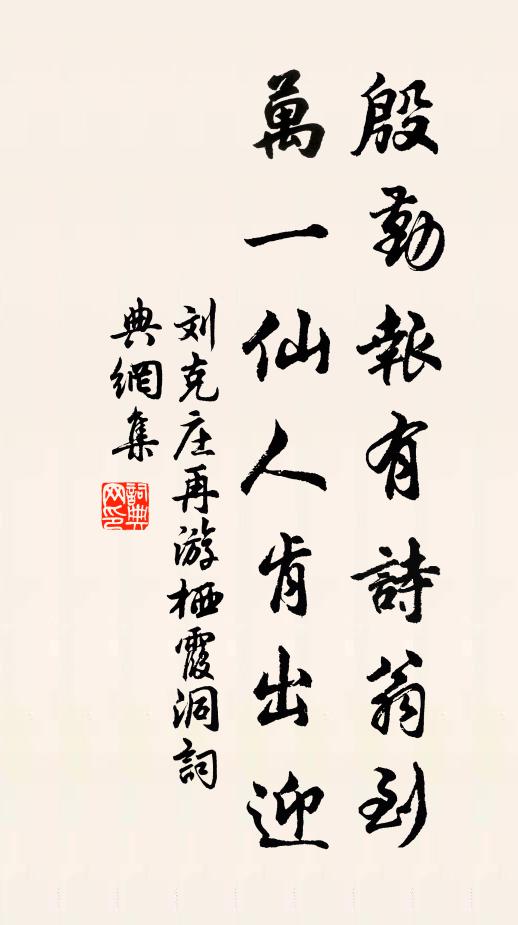 殷勤報有詩翁到
萬一仙人肯出迎
刘克庄再游栖霞洞詞
典網集
詞典
网印